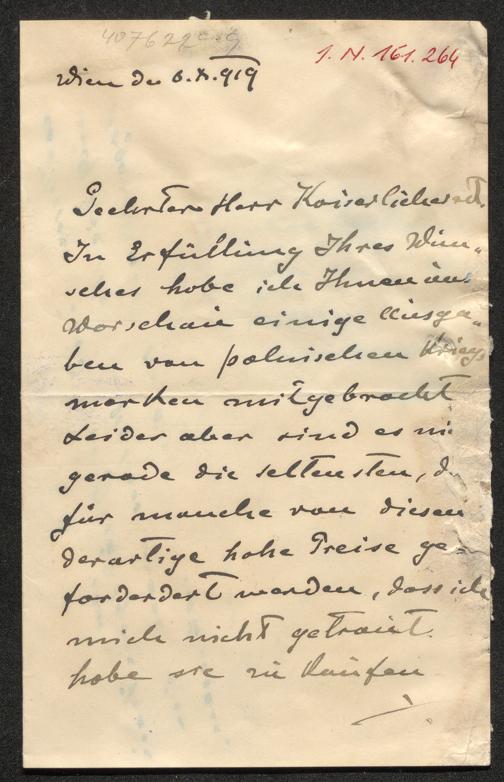 407622
I. N. 161.264
Wien den 6.X.919
Geehrter Herr Kaiserlicherrat.
In Erfüllung Ihres Wun„
sches habe ich Ihnen aus
Warschau einige Ausga„
ben von polnischen Kriegs
marken mitgebracht
Leider aber sind es ni
gerade die seltensten, da
für manche von diesen
derartige hohe Preise ge„
fordert werden, dass ich
mich nicht getraut
habe sie zu kaufen